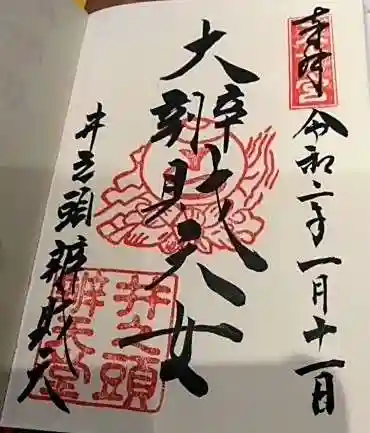 奉拝
令和二年一月十一日
大辨財天女
井之頭辨財天
井之頭
辨天堂